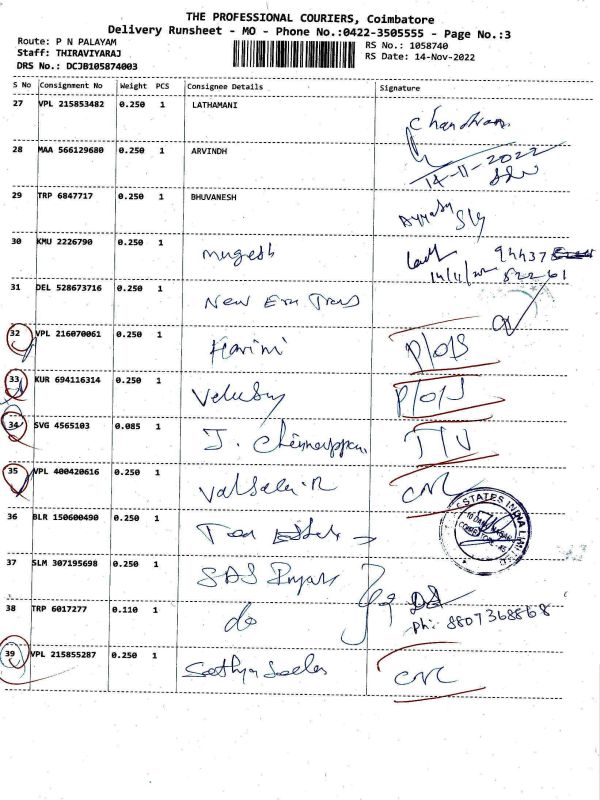 THE PROFESSIONAL COURIERS, Coimbatore
Delivery Runsheet - MO - Phone No.:0422-3505555 - Page No.:3
Route: P N PALAYAM
Staff: THIRAVIYARAJ
DRS No.: DCJB105874003
RS No.: 1058740
RS Date: 14-Nov-2022
S No Consignment No Weight PCS Consignee Details Signature
27 VPL 215853482 0.250 1 LATHAMANI
14-11-2022
28 MAA 566129680 0.250 1 ARVINDH
29 TRP 6847717 0.250 1 BHUVANESH
30 KMU 2226790 0.250 1 mugesh 94437
52261
31 DEL 528673716 0.250 1 New Era Trans
32 VPL 216070061 0.250 1 Harini P/O/S
33 KUR 694116314 0.250 1 P/O/S
34 SVG 4565103 0.085 1 J.
35 VPL 400420616 0.250 1 Valsala.R CNR
STATES INDIA LIMITED
36 BLR 150600490 0.250 1
37 SLM 307195698 0.250 1 SAS
38 TRP 6017277 0.110 1 do
Ph: 8807368868
39 VPL 215855287 0.250 1 CNR